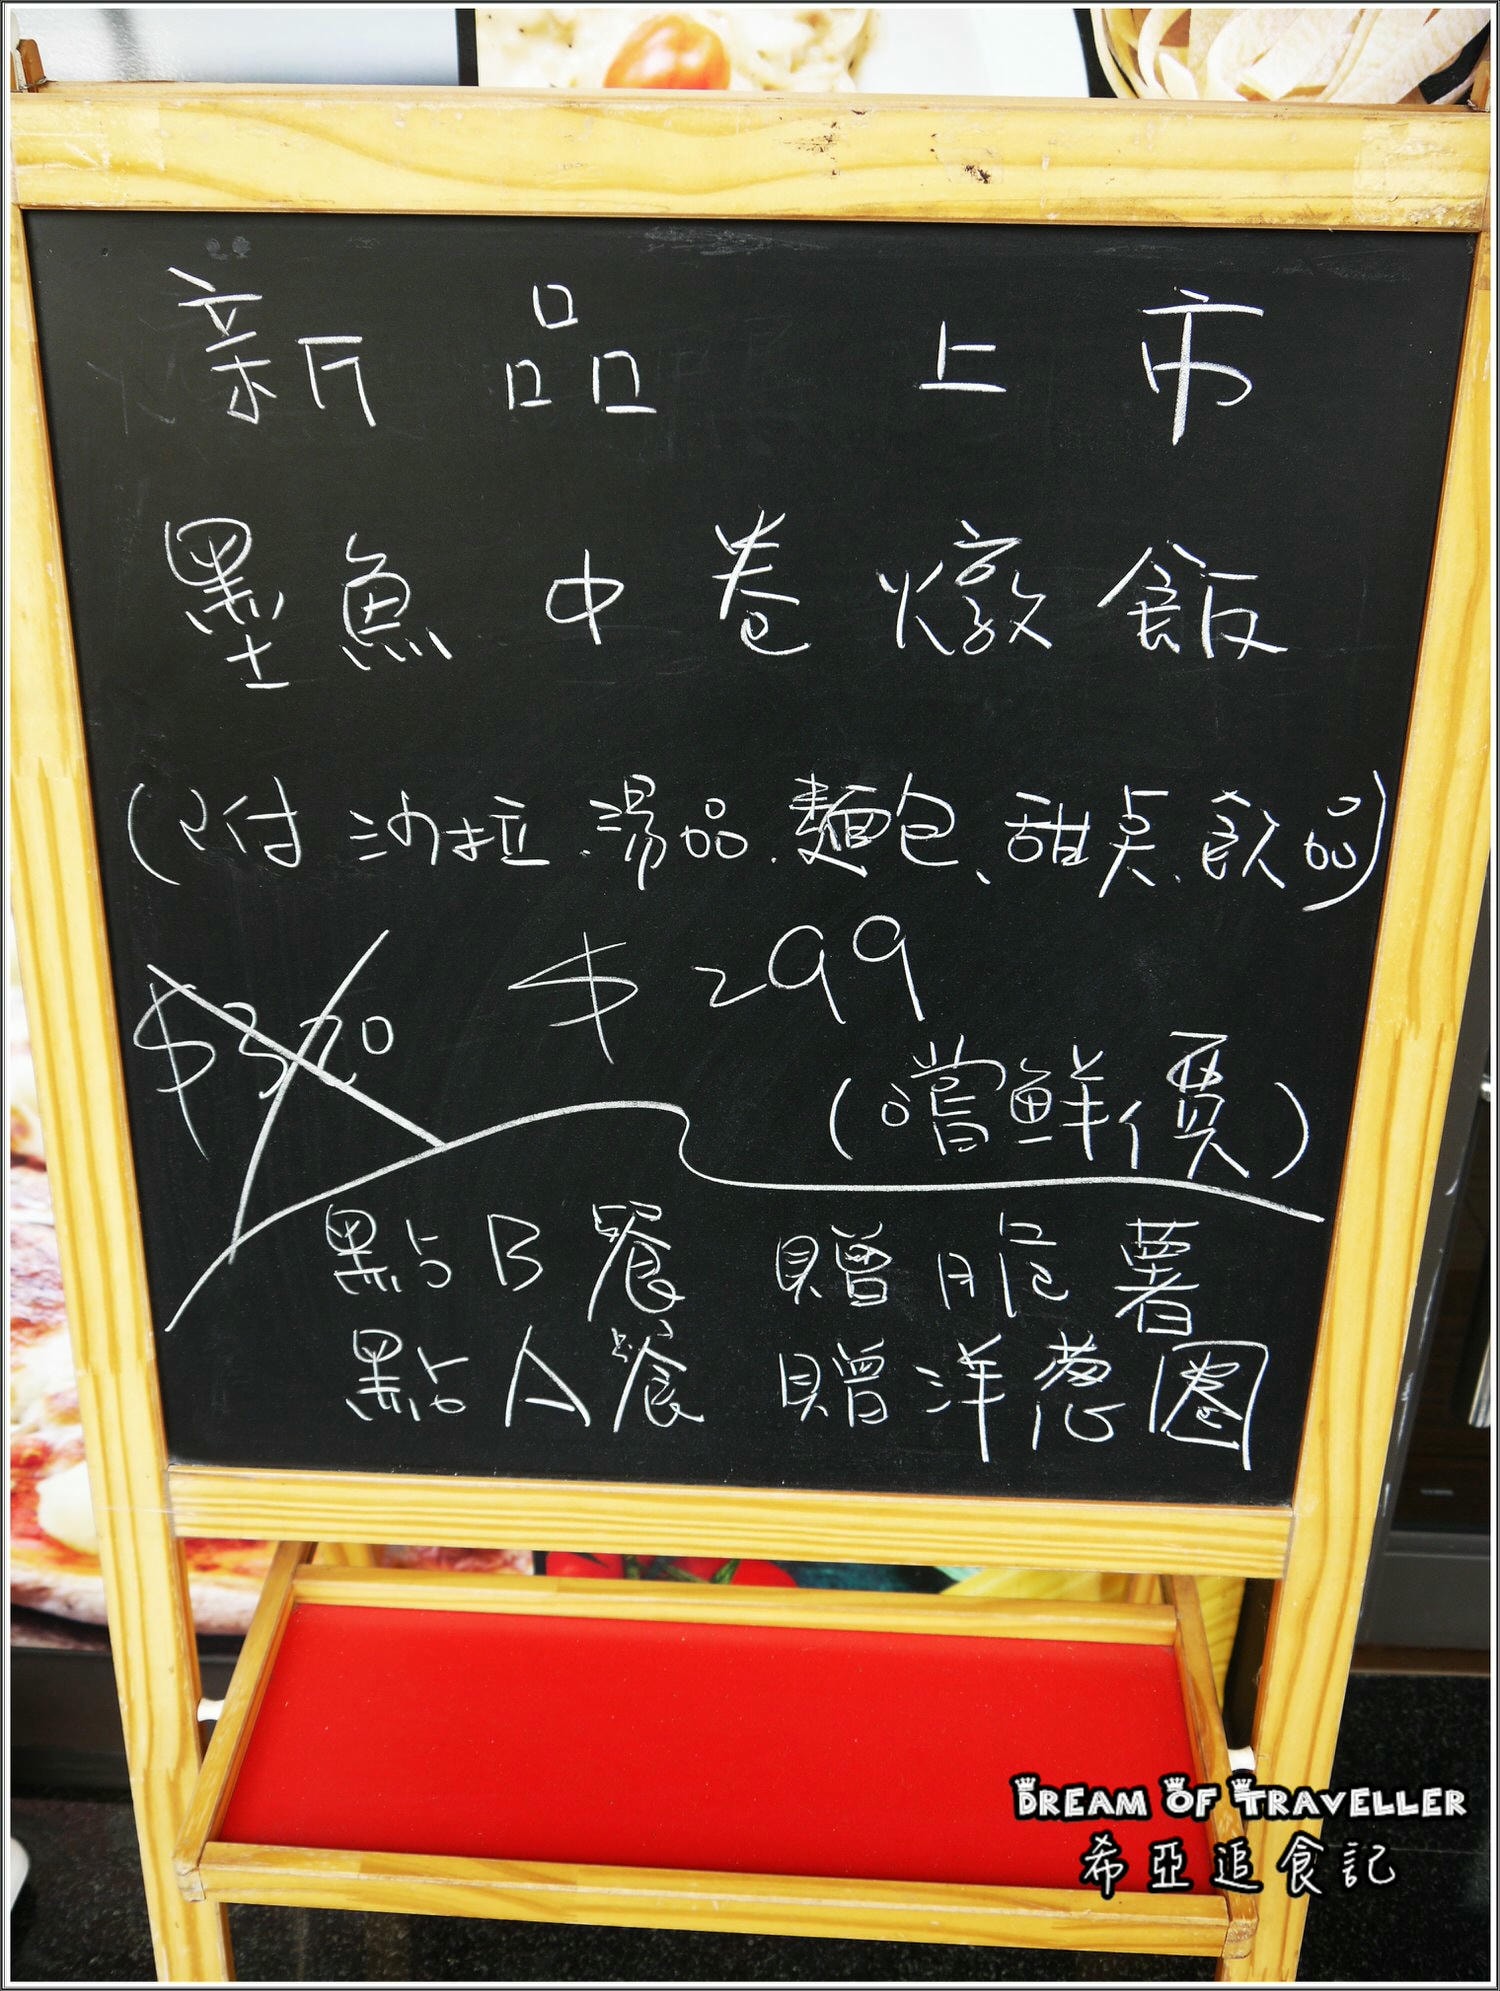 新品 上市
墨魚中卷燉飯
(附 沙拉.湯品.麵包、甜点.飲品)
$299
(嚐鮮價)
點B餐 贈脆薯
點A餐 贈洋葱圈
DREAM OF TRAVELLER
希亞追食記